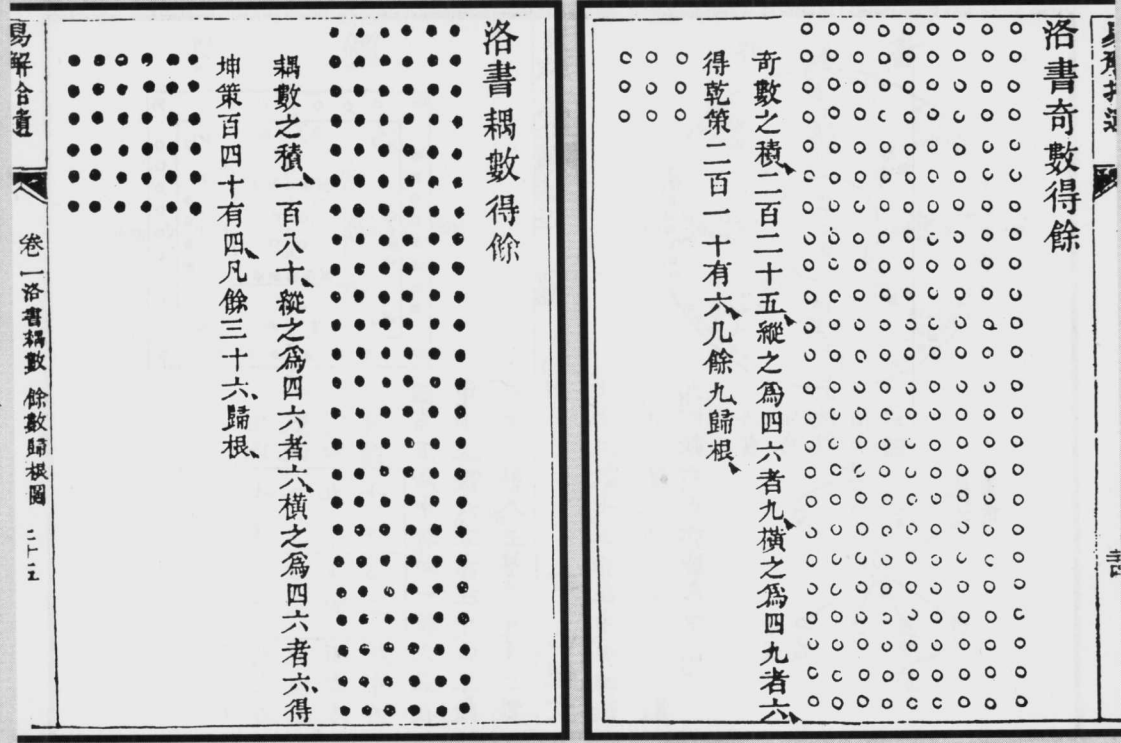 洛書奇數得餘
奇數之積二百二十五縱之為四六者九橫之為四九者六
得乾策二百一十有六凡餘九歸根
洛書耦數得餘
耦數之積一百八十縱之為四六者六橫之為四六者六得
坤策百四十有四凡餘三十六歸根
易解拾遺
卷一洛書耦數 餘數歸根圖 二十五